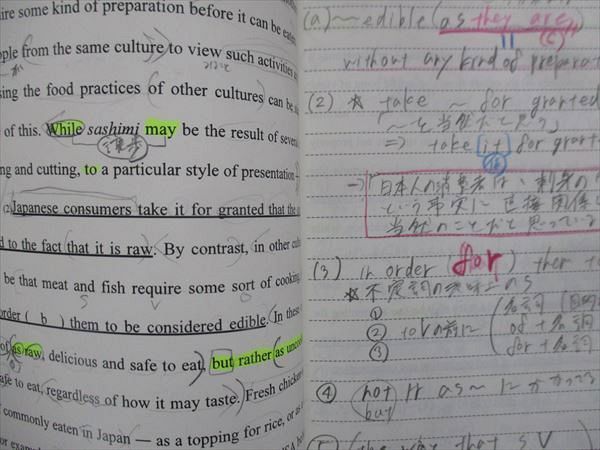 ire some kind of preparation before it can be eaten
ople from the same culture to view such activities
ing the food practices of other cultures can be
of this. While sashimi may be the result of several
譲歩
ng and cutting, to a particular style of presentation
(2) Japanese consumers take it for granted that the
d to the fact that it is raw. By contrast, in other cultu
be that meat and fish require some sort of cooking
S V
order ( b ) them to be considered edible. In these
of as raw, delicious and safe to eat, but rather as uncoo
afe to eat, regardless of how it may taste. Fresh chicken
commonly eaten in Japan — as a topping for rice, or as
or exam
(a) ~ edible (as they are)
(c)
without any kind of preparat
(2) ☆ take ~ for granted
「~を当然だと思う」
⇒ take it for grant
→ 日本人の消費者は、刺身の
という事実に直接関係し
当然のことだと思っている
(3) in order (for) them to
☆不定詞の意味上のS
① 名詞 (目的
② to Vの前に of + 名詞
③ for + 名詞
④ not は as~にかかってる
but
(the way that S V